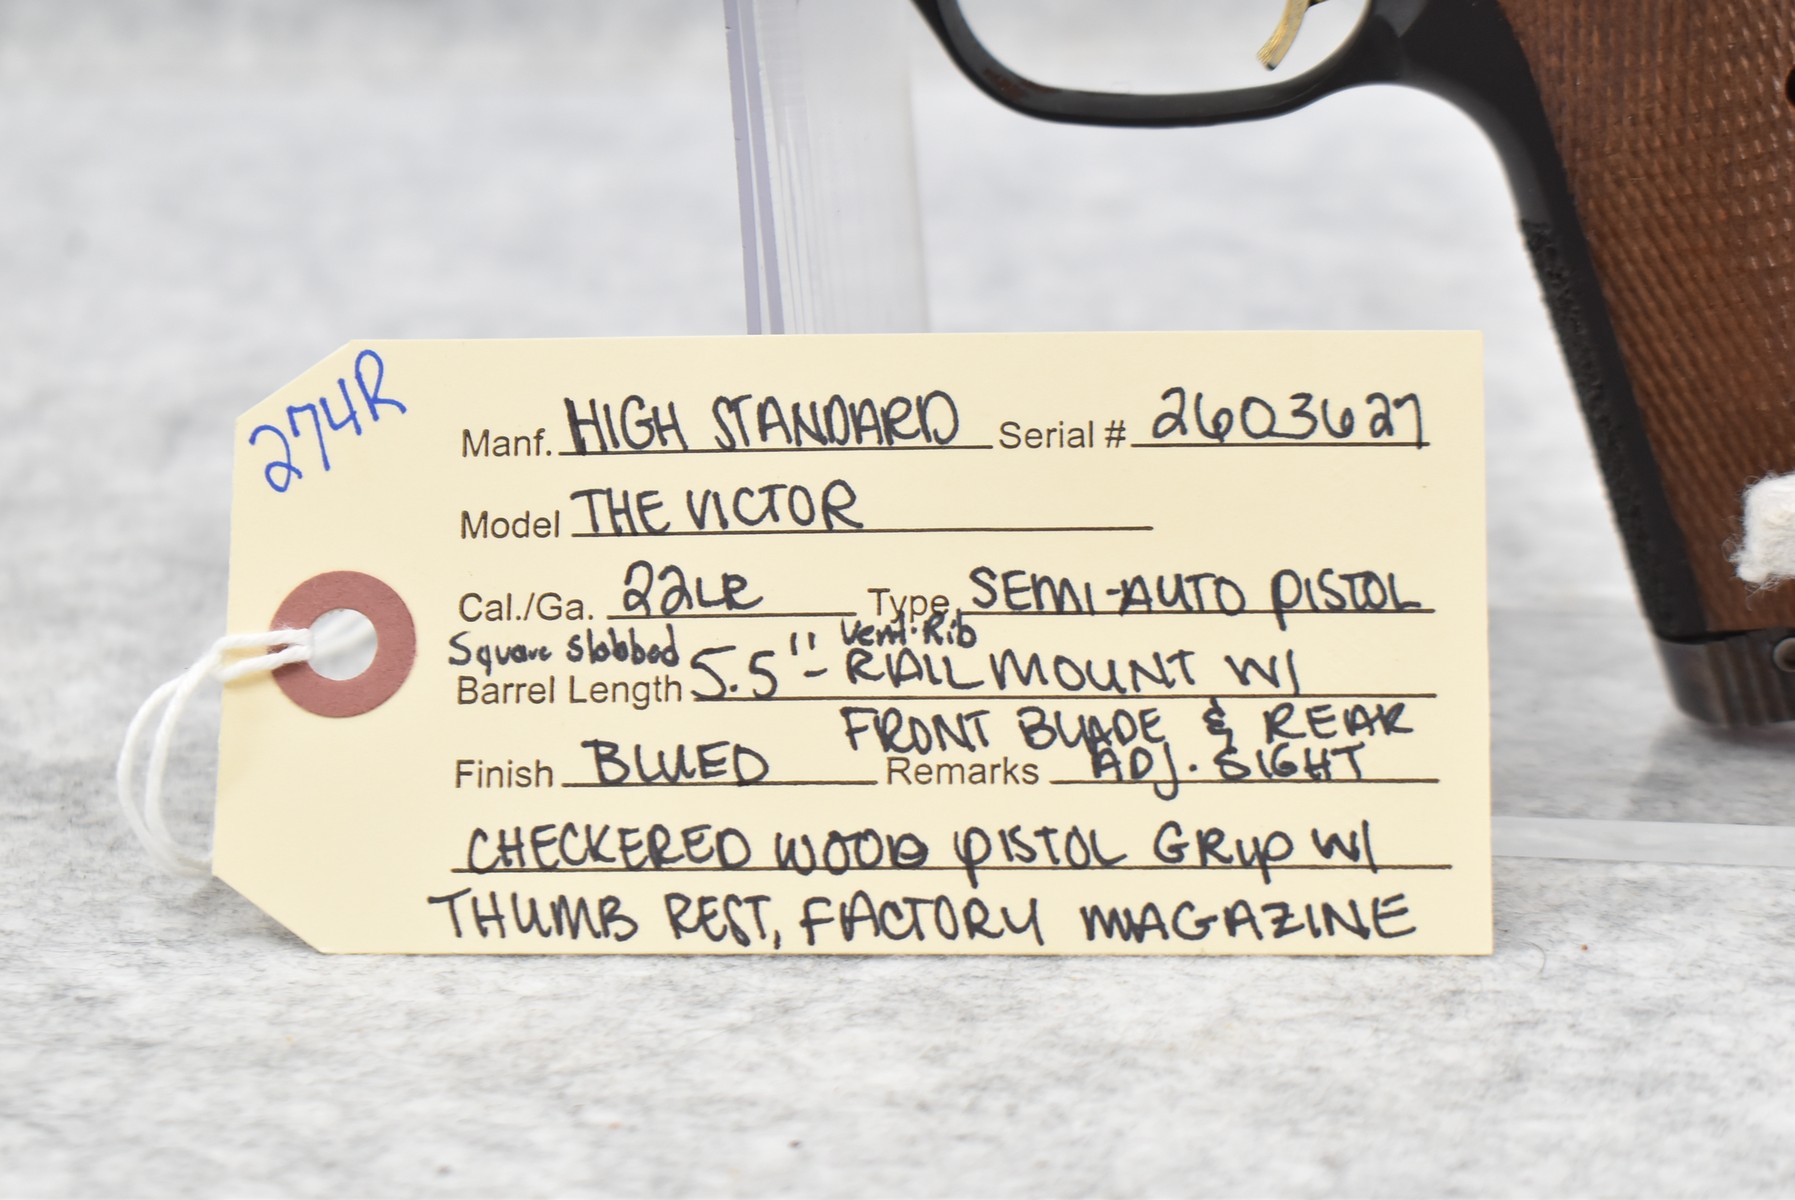 274R
Manf. HIGH STANDARD Serial # 2603627
Model THE VICTOR
Cal./Ga. 22LR Type SEMI-AUTO PISTOL
Square slabbed Vent. Rib
Barrel Length 5.5"- RAIL MOUNT W/
FRONT BLADE & REAR
Finish BLUED Remarks ADJ. SIGHT
CHECKERED WOOD PISTOL GRIP W/
THUMB REST, FACTORY MAGAZINE